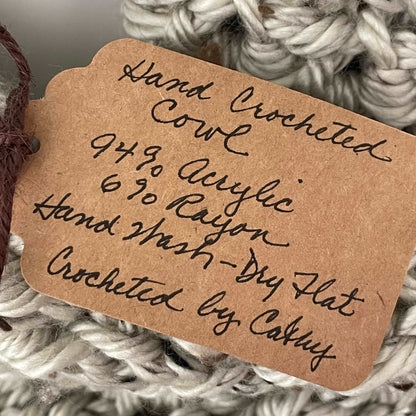 Hand Crocheted
Cowl
94% Acrylic
6% Rayon
Hand Wash - Dry Flat
Crocheted by Cathy